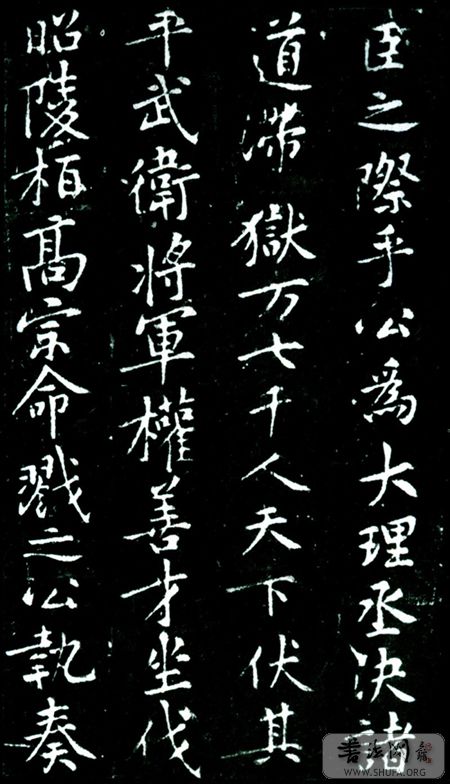 臣之際乎公為大理丞决諸
道滯獄万七千人天下伏其
平武衛將軍權善才坐伐
昭陵栢髙宗命戮之公執奏
書法网
WWW.SHUFA.ORG